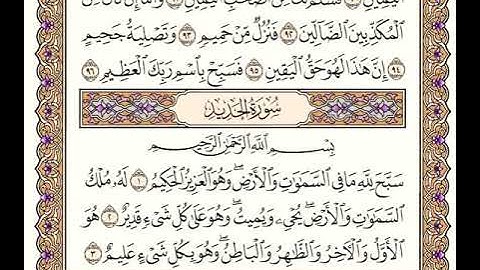 ٱلۡيَمِينِ ٩٠ فَسَلَٰمٞ لَّكَ مِنۡ أَصۡحَٰبِ ٱلۡيَمِينِ ٩١ وَأَمَّآ إِن كَانَ مِنَ
ٱلۡمُكَذِّبِينَ ٱلضَّآلِّينَ ٩٢ فَنُزُلٞ مِّنۡ حَمِيمٖ ٩٣ وَتَصۡلِيَةُ جَحِيمٍ
٩٤ إِنَّ هَٰذَا لَهُوَ حَقُّ ٱلۡيَقِينِ ٩٥ فَسَبِّحۡ بِٱسۡمِ رَبِّكَ ٱلۡعَظِيمِ ٩٦
سُورَةُ الحَدِيد
بِسۡمِ ٱللَّهِ ٱلرَّحۡمَٰنِ ٱلرَّحِيمِ
سَبَّحَ لِلَّهِ مَا فِي ٱلسَّمَٰوَٰتِ وَٱلۡأَرۡضِۖ وَهُوَ ٱلۡعَزِيزُ ٱلۡحَكِيمُ ١ لَهُۥ مُلۡكُ
ٱلسَّمَٰوَٰتِ وَٱلۡأَرۡضِۖ يُحۡيِۦ وَيُمِيتُۖ وَهُوَ عَلَىٰ كُلِّ شَيۡءٖ قَدِيرٌ ٢ هُوَ
ٱلۡأَوَّلُ وَٱلۡأٓخِرُ وَٱلظَّٰهِرُ وَٱلۡبَاطِنُۖ وَهُوَ بِكُلِّ شَيۡءٍ عَلِيمٌ ٣